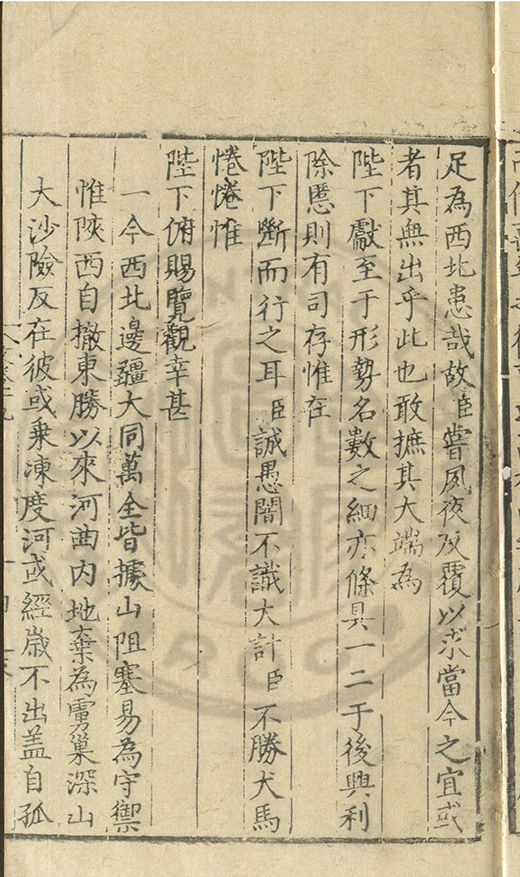 足為西北患哉故臣嘗夙夜反覆以求當今之宜或
者其無出乎此也敢摭其大端為
陛下獻至于形勢名數之細亦條具一二于後興利
除慝則有司存惟在
陛下斷而行之耳臣誠愚闇不識大計臣不勝犬馬
惓惓惟
陛下俯賜覽觀幸甚
一今西北邊疆大同萬全皆據山阻塞易為守禦
惟陜西自撤東勝以來河曲內地棄為虜巢深山
大沙險反在彼或乗凍度河或經歳不出盖自孤